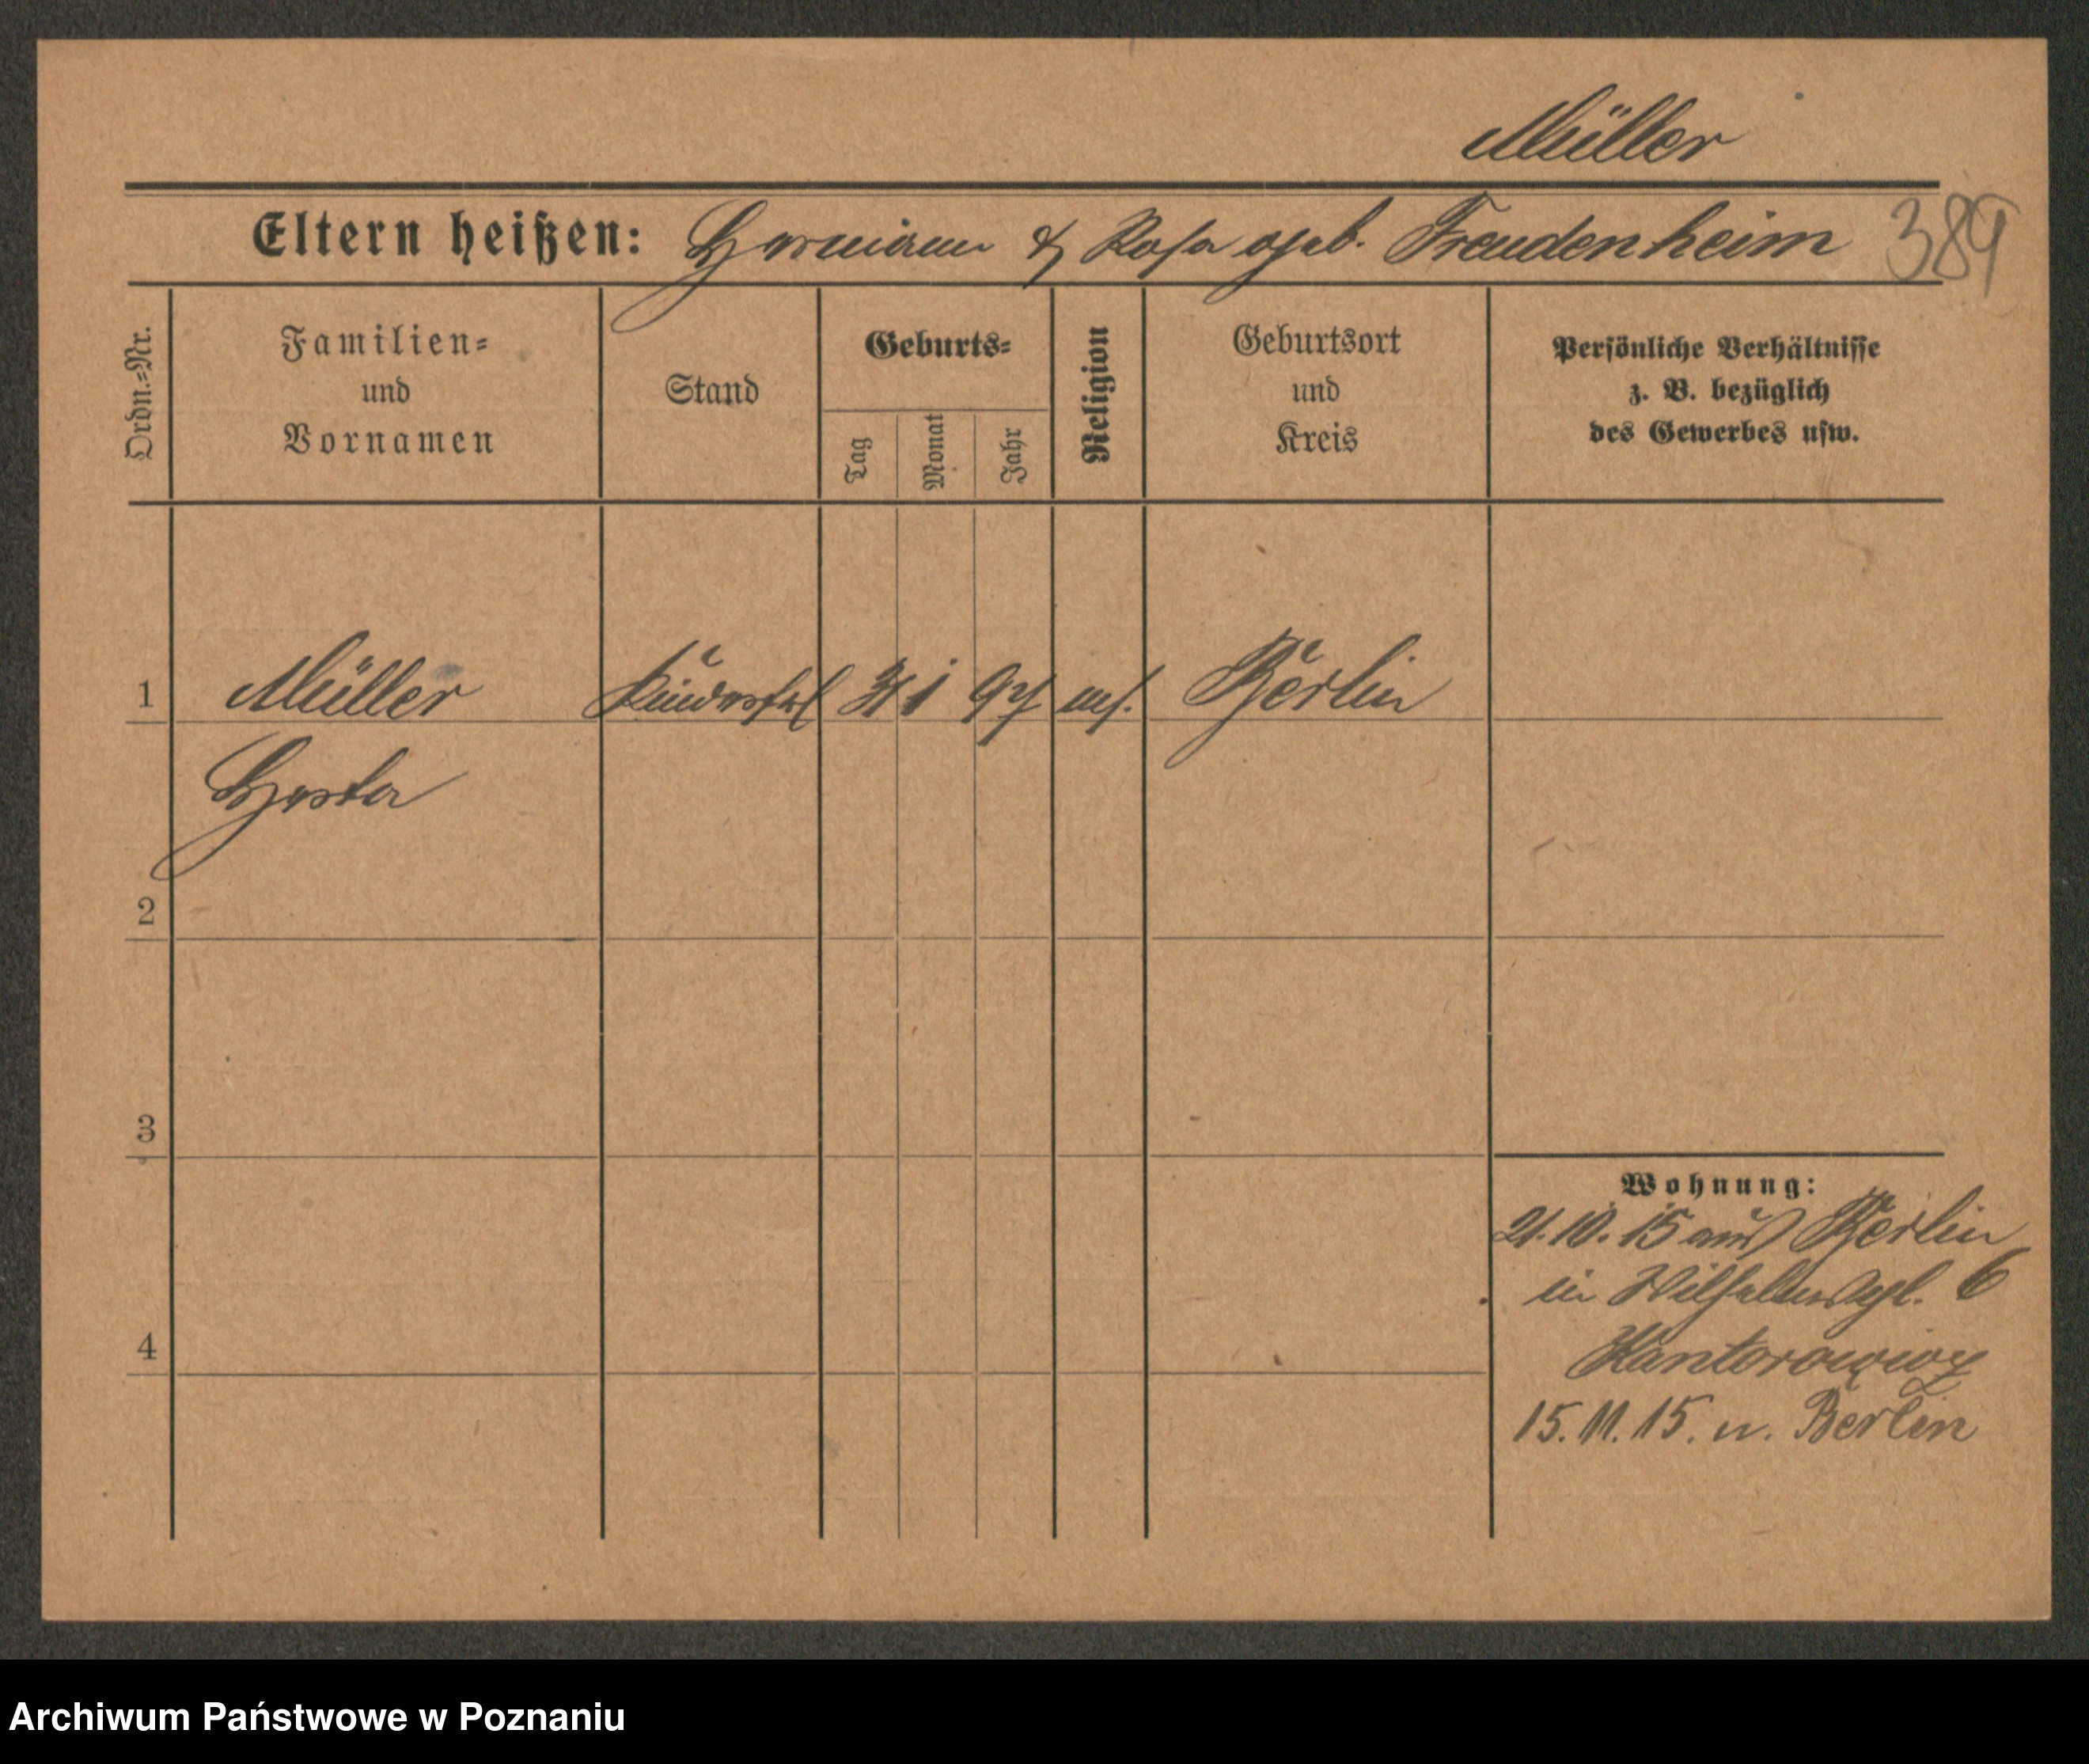 Müller
Eltern heißen: Hermann & Rosa geb. Freudenheim 389
Ordn.=Nr.
Familien=
und
Vornamen
Stand
Geburts=
Tag
Monat
Jahr
Religion
Geburtsort
und
Kreis
Persönliche Verhältnisse
z. B. bezüglich
des Gewerbes usw.
1 Müller 1 97 Berlin
Herta
2
3
4
Wohnung:
21.10.15 aus Berlin
in Wilhelmspl. 6
Kantorowicz
15.11.15. n. Berlin
Archiwum Państwowe w Poznaniu